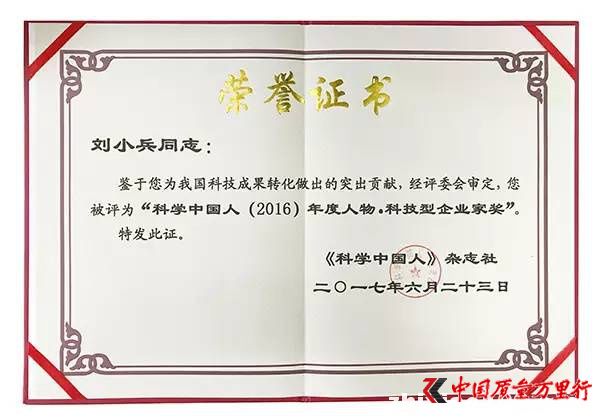 荣誉证书
刘小兵同志：
鉴于您为我国科技成果转化做出的突出贡献，经评委会审定，您
被评为“科学中国人（2016）年度人物·科技型企业家奖”。
特发此证。
《科学中国人》杂志社
二〇一七年六月二十三日
中国质量万里行